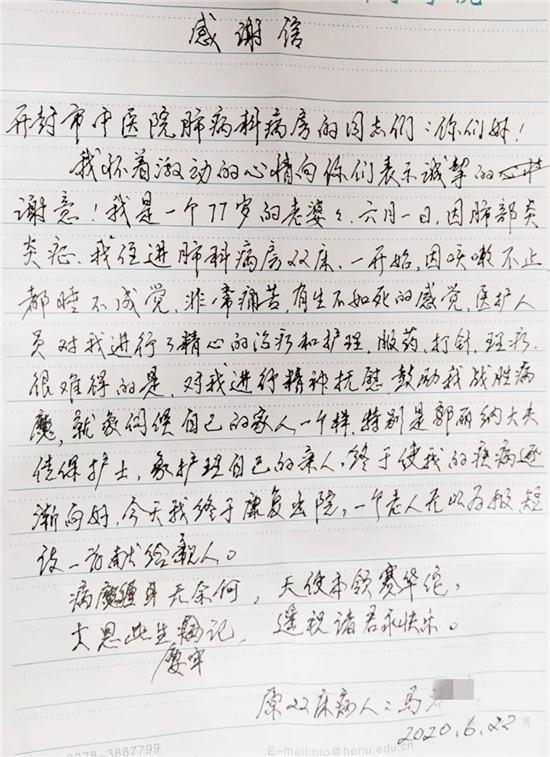 感谢信
开封市中医院肺病科病房的同志们：你们好！
我怀着激动的心情向你们表示诚挚的
谢意！我是一个77岁的老婆々．六月一日，因肺部炎
炎症．我住进肺科病房双床．一开始，因咳嗽不止
都睡不成觉，非常痛苦，有生不如死的感觉，医护人
员对我进行了精心的治疗和护理，服药、打针、理疗．
很难得的是，对我进行精神抚慰，鼓励我战胜病
魔，就象伺候自己的家人一个样，特别是郭丽纳大夫
佳保护士，象护理自己的亲人，终于使我的疾病逐
渐向好，今天我终于康复出院，一个老人无以为报，短
诗一首献给亲人。
病魔缠身无奈何，天使本领赛华佗，
大恩此生牢记，遥祝诸君永快乐。
原双床病人：马
2020.6.22
0378-3887799 E-mail:bio@henu.edu.cn